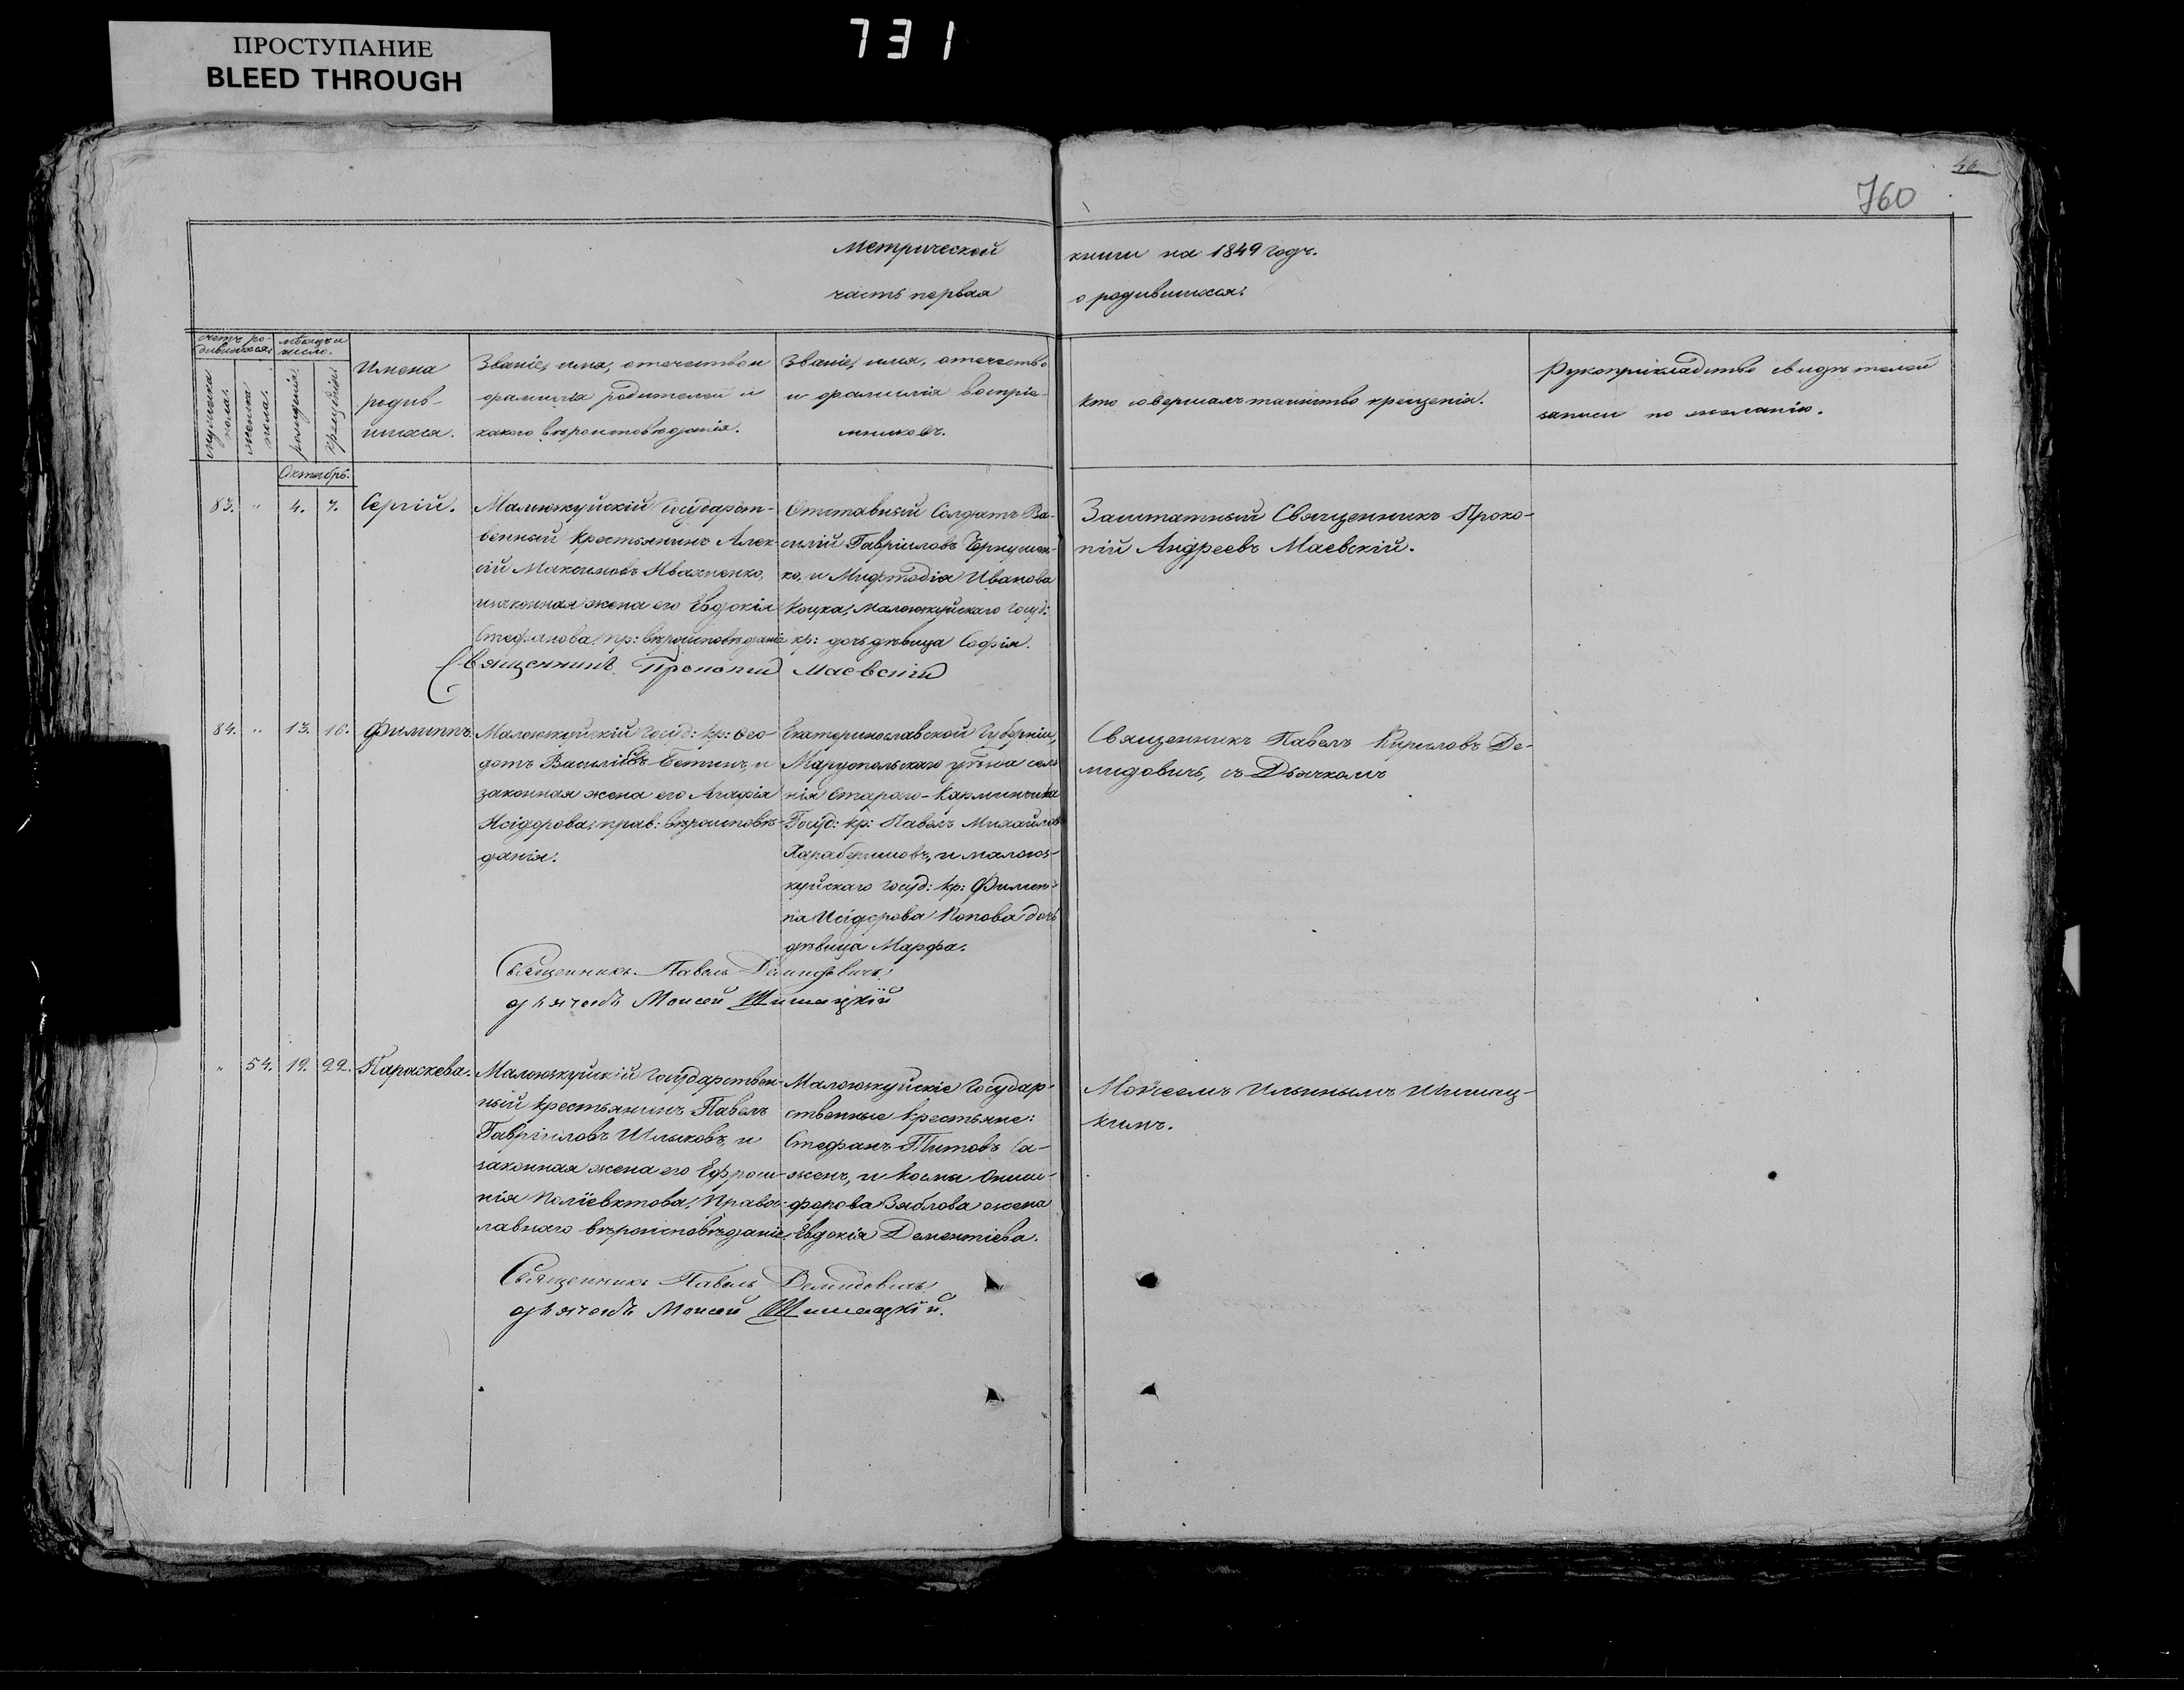 ПРОСТУПАНИЕ
BLEED THROUGH
731
46
760
Метрической книги на 1849 годъ.
часть первая о родившихся:
счетъ ро-
дившихся:
мужеска
пола.
женска
пола.
мѣсяцъ и
число.
рожденія.
крещенія.
Имена
родив-
шихся.
Званіе, имя, отечество и
фамилія родителей и
какого вѣроисповѣданія.
Званіе, имя, отечество
и фамилія воспріе-
мниковъ.
Кто совершалъ таинство крещенія.
Рукоприкладство свидѣтелей
записи по желанію.
Октябрь.
83. " 4. 7. Сергій.
Малоянкуйскій Государст-
венный крестьянинъ Алек-
сій Максимовъ Иваненко,
и законная жена его Евдокія
Стефанова, пр: вѣроисповѣданія
Отставный Солдатъ Ва-
силій Гавріиловъ
ко, и Мифтодія Иванова
Коцка, Малоянкуйскаго Госуд:
кр: дочь дѣвица Софія.
Заштатный Священникъ Проко-
пій Андреевъ Маевскій.
Священникъ Прокопий Маевский
84. " 13. 16. Филиппъ
Малоянкуйскій Госуд: кр: Ѳео-
дотъ Василіевъ и
законная жена его Агафія
Исідорова; прав: вѣроисповѣ-
данія.
Екатеринославской Губерніи,
Маріупольскаго уѣзда селе
нія Стараго-
Госуд: кр: Павелъ Михайловъ
и малоян-
куйскаго Госуд: кр: Филип-
па Исідорова Попова дочь
дѣвица Марфа.
Священникъ Павелъ Кириловъ Де-
мидовичъ, съ Дьячкомъ
Священникъ Павелъ Демидовичъ
дьячокъ Моисей Шишацкій
" 54. 19. 22. Параскева.
Малоянкуйскій Государствен-
ный крестьянинъ Павелъ
Гавріиловъ и
законная жена его Ефроси-
нія Поліевктова, Правос-
лавнаго вѣроисповѣданія.
Малоянкуйскіе Государ-
ственные крестьяне:
Стефанъ Титовъ Са-
женъ, и Космы Ониси-
форова Зяблова жена
Евдокія Дементіева.
Моѵсеемъ Ильинымъ Шишац-
кимъ.
Священникъ Павелъ Демидовичъ
дьячокъ Моисей Шишацкій.